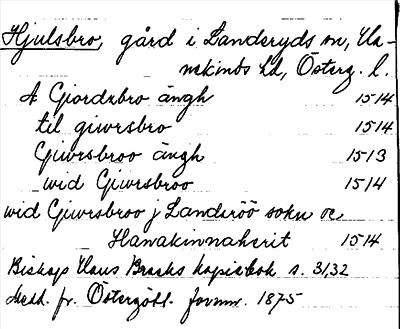 Hjulsbro, gård i Landeryds sn, Ha-
nekinds hd, Österg. l.
A Giordzbro ängh 1514
til giwrsbro 1514
Giwrsbroo ängh 1513
wid Giwrsbroo 1514
wid Giwrsbroo j Landzröö sokn oc
Hanakinnahærit 1514
Biskop Hans Brasks kopiebok s. 31,32
Medd. fr. Östergötl. fornm. 1875